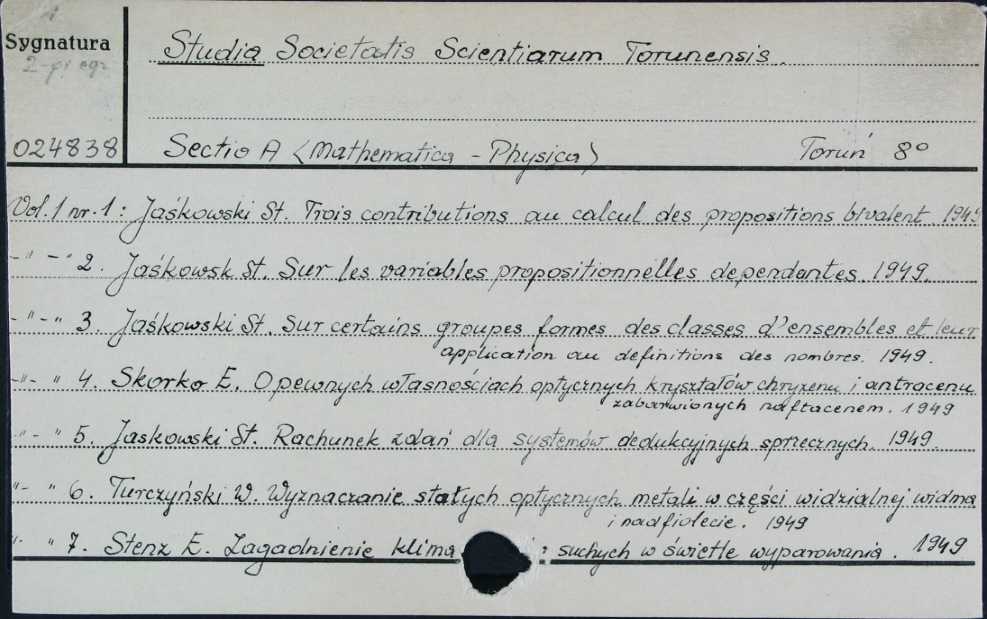 Sygnatura
Studia Societatis Scientiarum Torunensis.
024838
Sectio A (Mathematica - Physica)
Toruń 8°
Vol. 1 nr. 1: Jaśkowski St. Trois contributions au calcul des propositions bivalent. 1949
-"- -"- 2. Jaśkowsk St. Sur les variables propositionnelles dependantes. 1949.
-"- " 3. Jaśkowski St. Sur certains groupes formes des classes d'ensembles et leur
application au definitions des nombres. 1949.
-"- " 4. Skorko E. O pewnych własnościach optycznych kryształów chryzenu i antracenu
zabarwionych naftacenem. 1949
-"- " 5. Jaskowski St. Rachunek zdań dla systemów dedukcyjnych sprzecznych. 1949.
"- " 6. Turczyński W. Wyznaczanie stałych optycznych metali w części widzialnej widma
i nadfiolecie. 1949
"- " 7. Stenz E. Zagadnienie klima suchych w świetle wyparowania. 1949